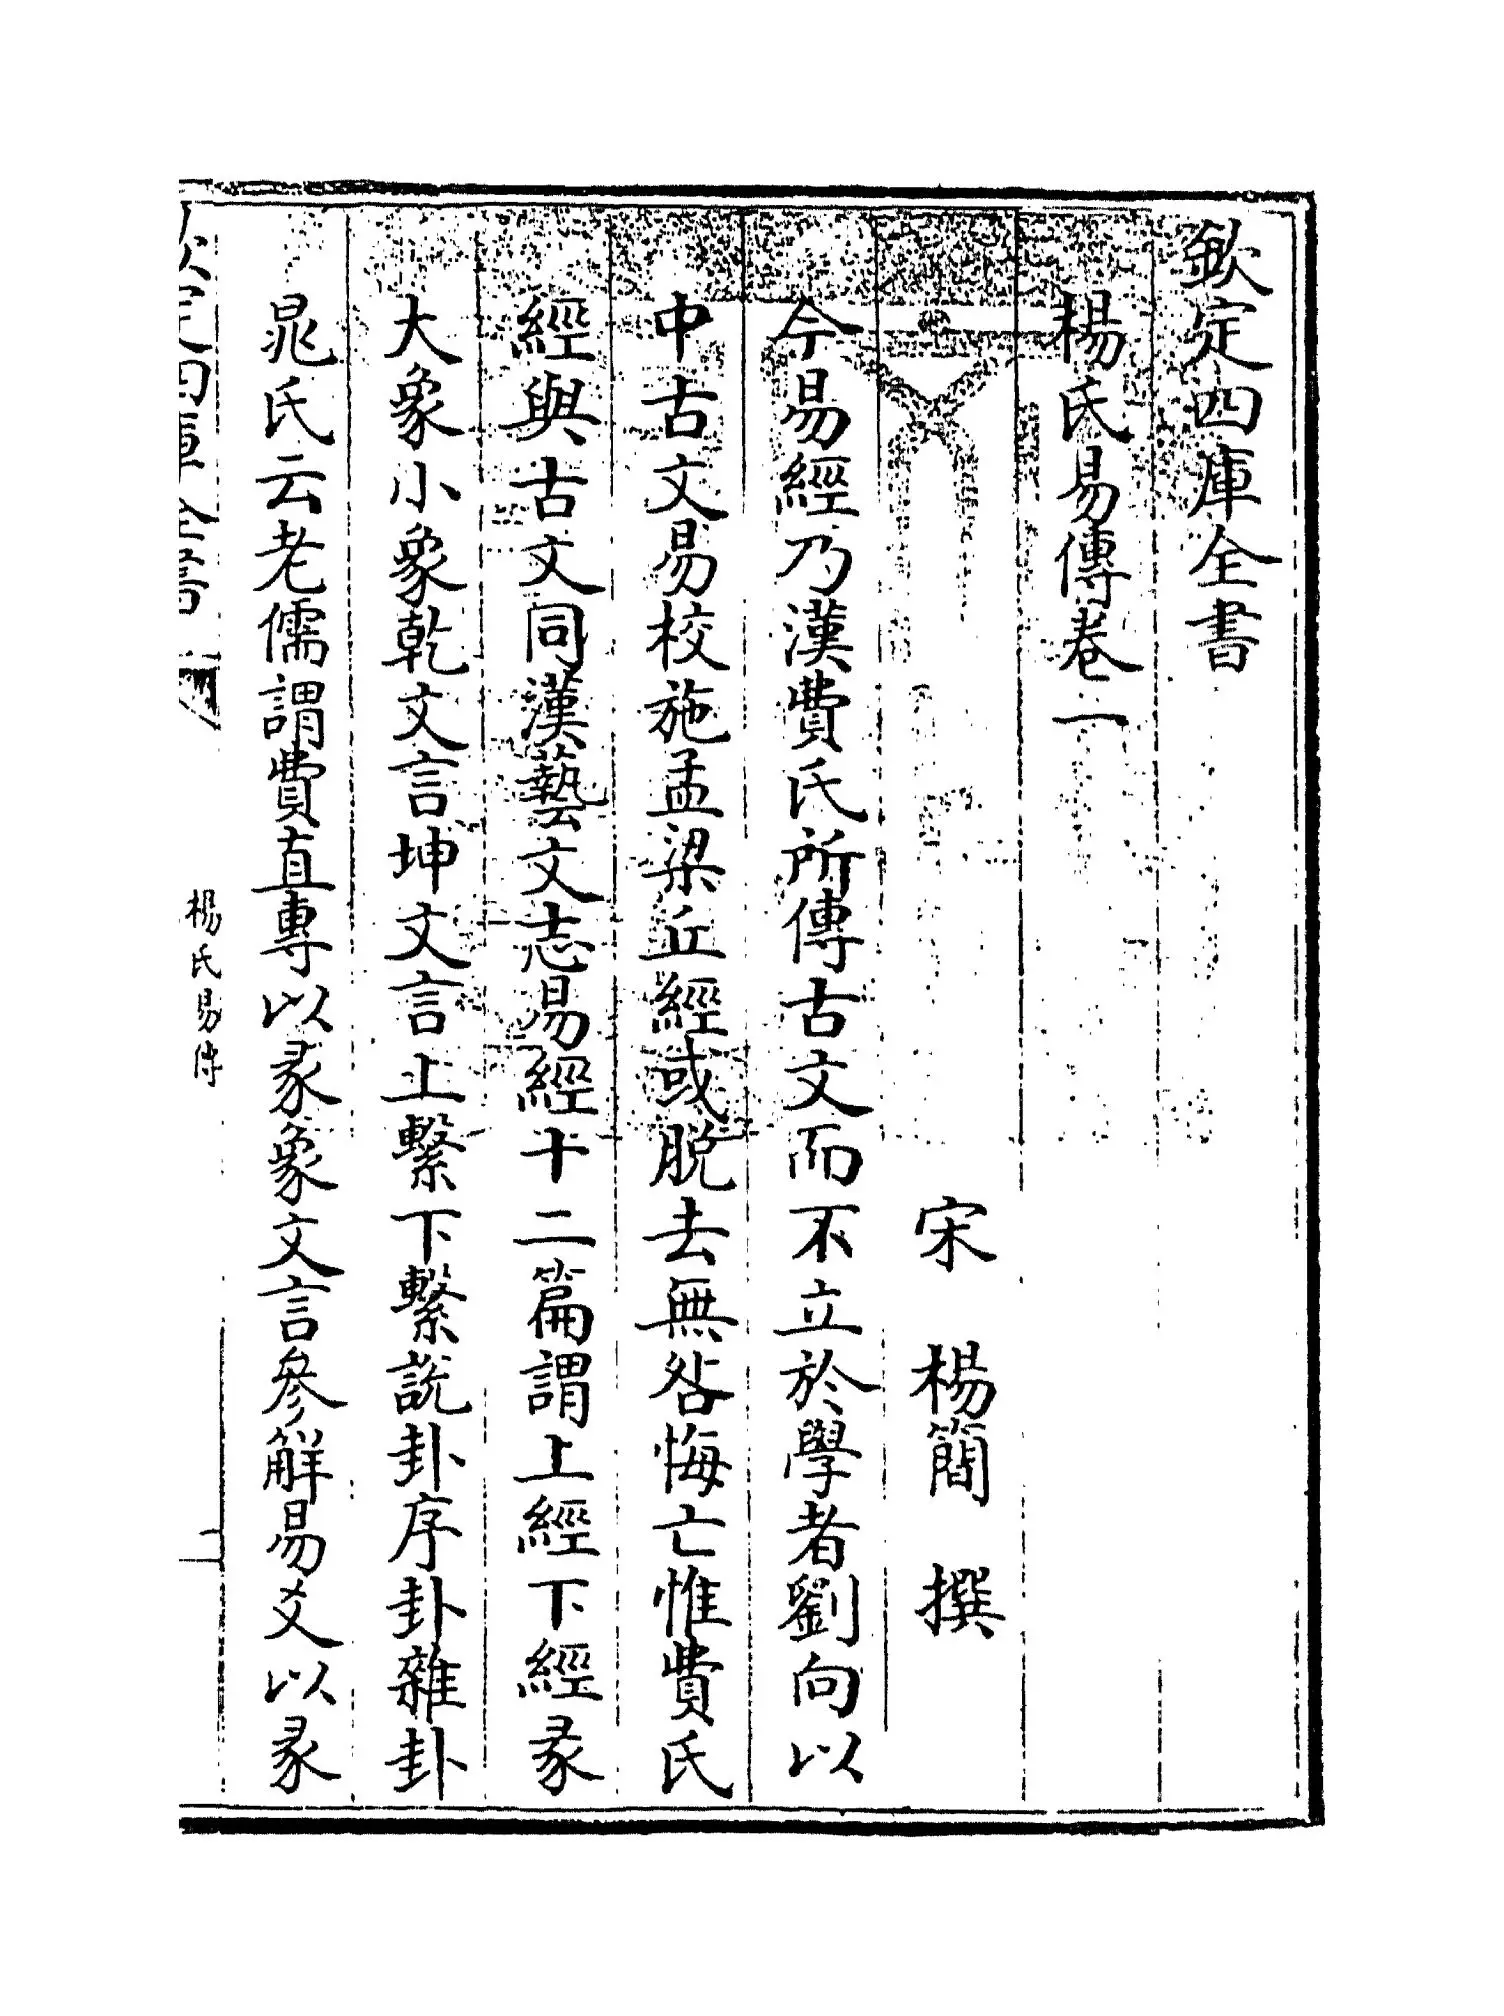 欽定四庫全書
楊氏易傳卷一
宋 楊簡 撰
今易經乃漢費氏所傳古文而不立於學者劉向以
中古文易校施孟梁丘經或脫去無咎悔亡惟費氏
經與古文同漢藝文志易經十二篇謂上經下經彖
大象小象乾文言坤文言上繫下繫說卦序卦雜卦
晁氏云老儒謂費直專以彖象文言參解易爻以彖
欽定四庫全書
楊氏易傳
一